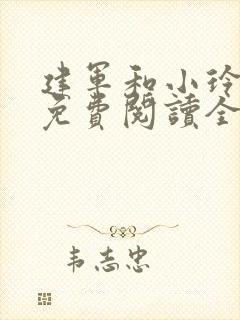 建军和小玲
免費閱讀全
韦志忠